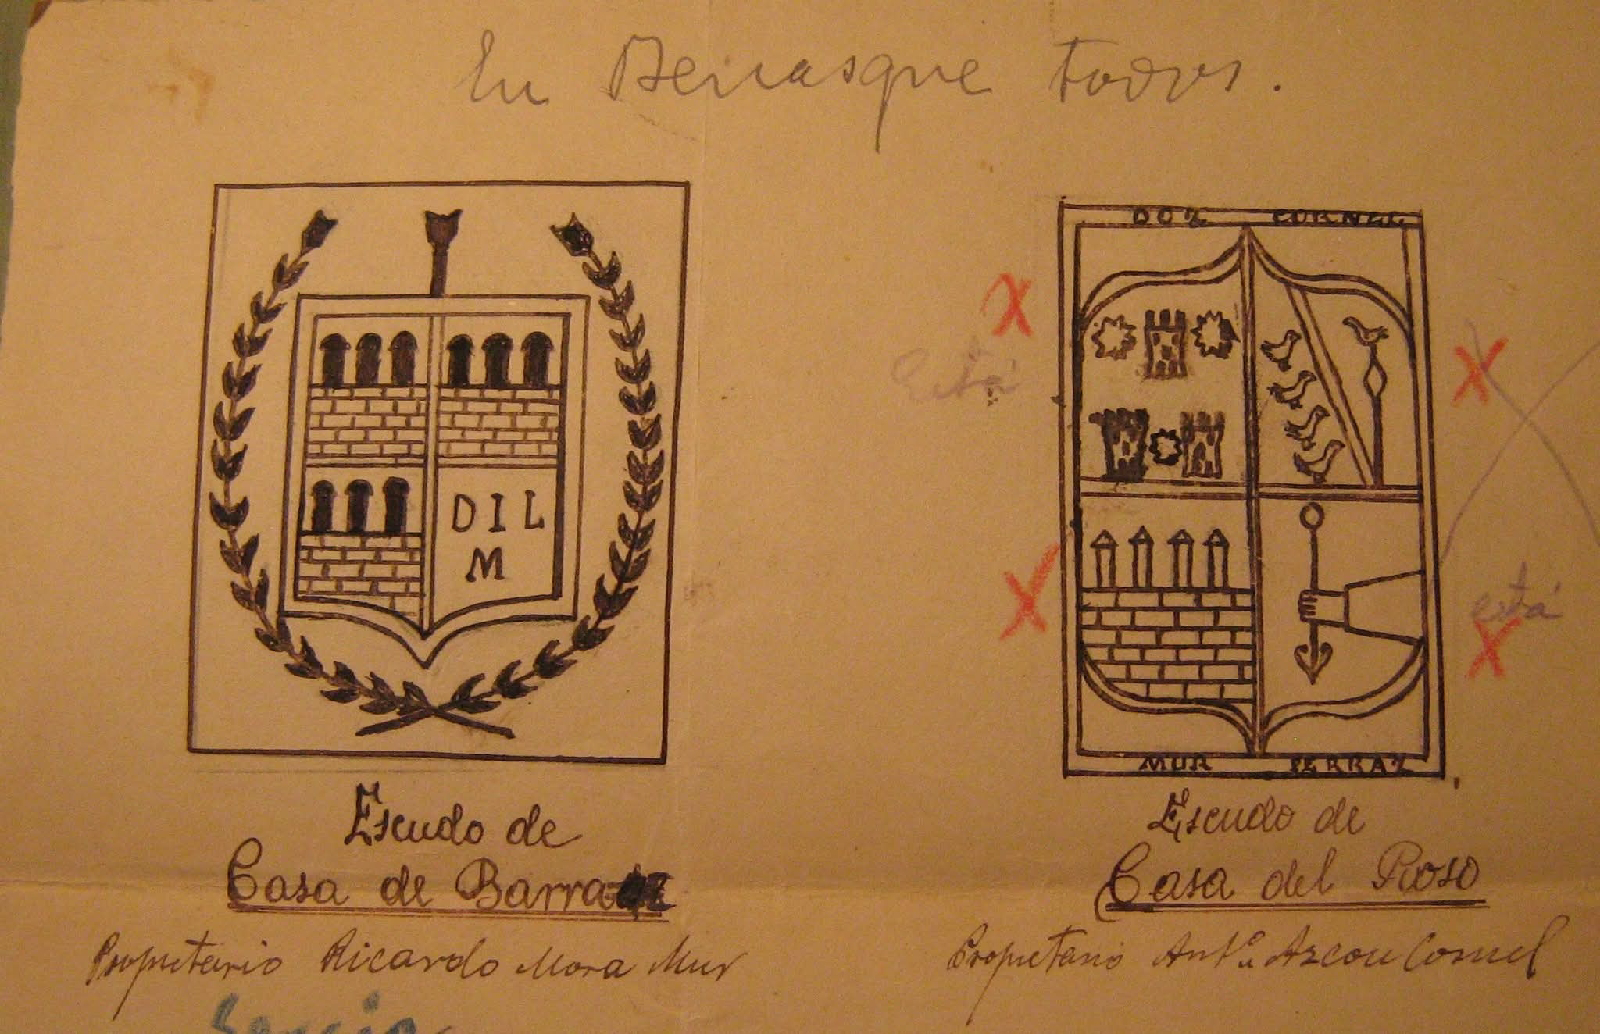 En Benasque todos.
DOZ CORNEL
Está
DIL
M
está
MUR FERRAZ
Escudo de
Casa de Barra
Propietario Ricardo Mora Mur
Escudo de
Casa del Roso
Propietario Antº Azcon Cornel